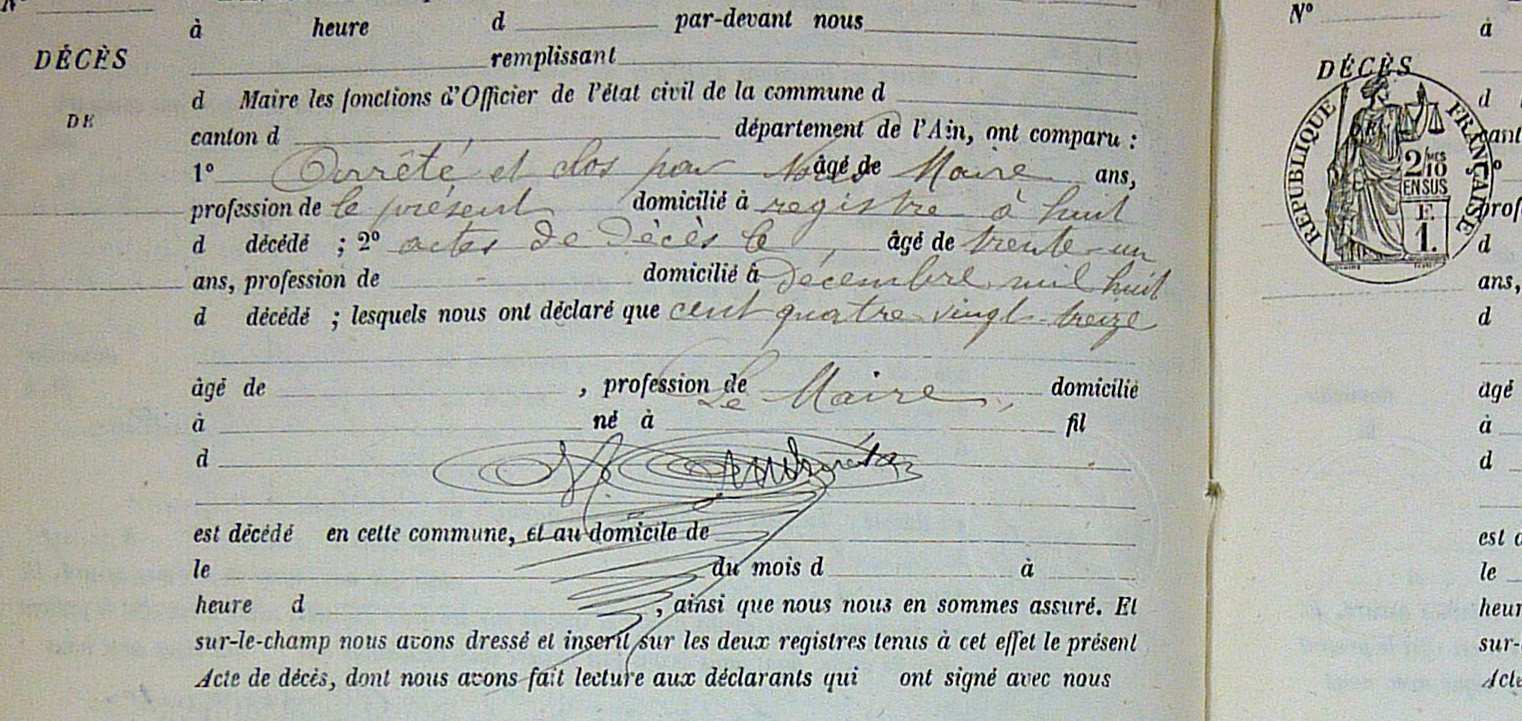 N°
à heure d par-devant nous
DÉCÈS
remplissant
d Maire les fonctions d'Officier de l'état civil de la commune d
DE
canton d département de l'Ain, ont comparu :
1° Arrêté et clos par Nous âgé de Maire ans,
profession de le présent domicilié à registre à huit
d décédé ; 2° actes de Décès le âgé de trente-un
ans, profession de domicilié à Décembre mil huit
d décédé ; lesquels nous ont déclaré que cent quatre vingt treize
âgé de , profession de Le Maire, domicilié
à né à fil
d
est décédé en cette commune, et au domicile de
le du mois d à
heure d , ainsi que nous nous en sommes assuré. Et
sur-le-champ nous avons dressé et inscrit sur les deux registres tenus à cet effet le présent
Acte de décès, dont nous avons fait lecture aux déclarants qui ont signé avec nous
N°
à
DÉCÈS
RÉPUBLIQUE FRANÇAISE
2/10 MES
EN SUS
F.
1.
d
d
ans,
d
âgé
à
d
est
le
heur
sur-